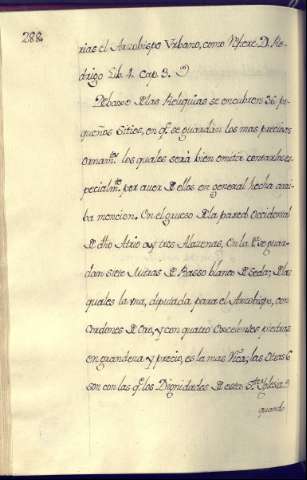 288
rias el Arzobispo Vrbano, como refiere D. Ro-
drigo Lib. 4. cap. 3.
Debaxo de las Reliquias se encubren 36. pe-
queños Sitios, en q.e se guardan los mas preciosos
Ornam.tos los quales será bien omitir contarlos es-
pecialm.te por aver de ellos en general hecha arri-
ba mencion. En el grueso de la pared Occidental
de dho Atrio ay tres Alazenas, En la 1.a se guar-
dan siete Mitras de Raso blanco de Seda, de las
quales la vna, diputada para el Arzobispo, con
Cordones de Oro, y con quatro Excelentes piedras
en grandeza y precio, es la mas Rica; las otras 6
son con las q.e los Dignidades de esta S.ta Yglesia
quando